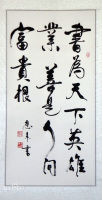 書為天下英雄
業善是人間
富貴根